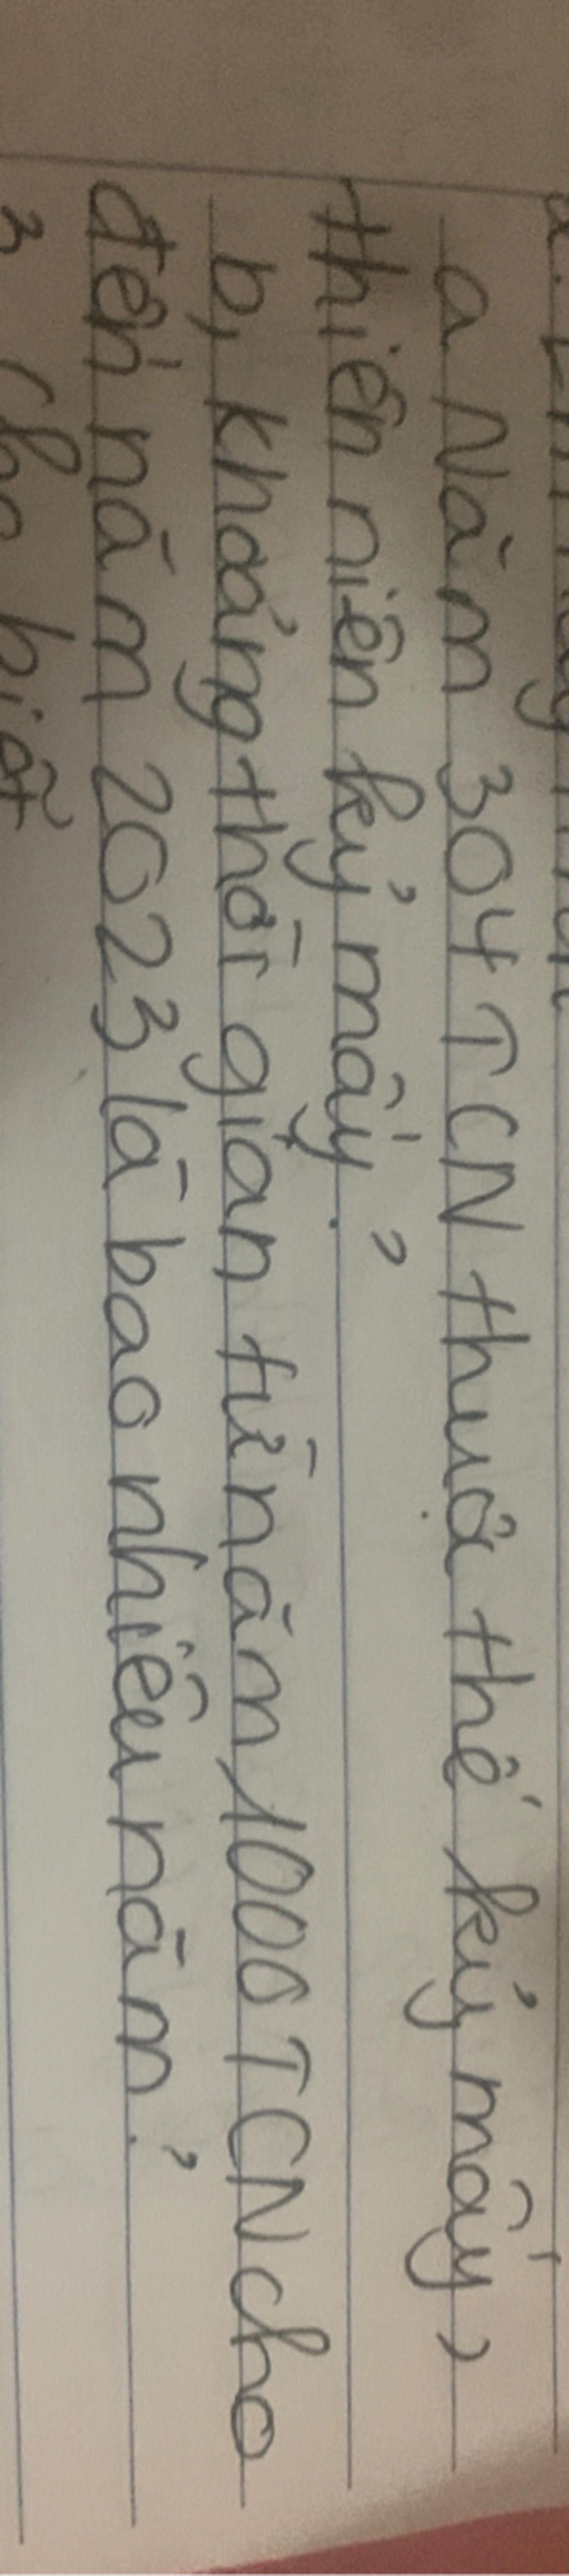 a Năm 304 TCN thuộc thế kỷ mấy,
thiên niên kỷ mấy?
b, khoảng thời gian từ năm 1000 TCN cho
đến năm 2023 là bao nhiêu năm?
3 Cho biết